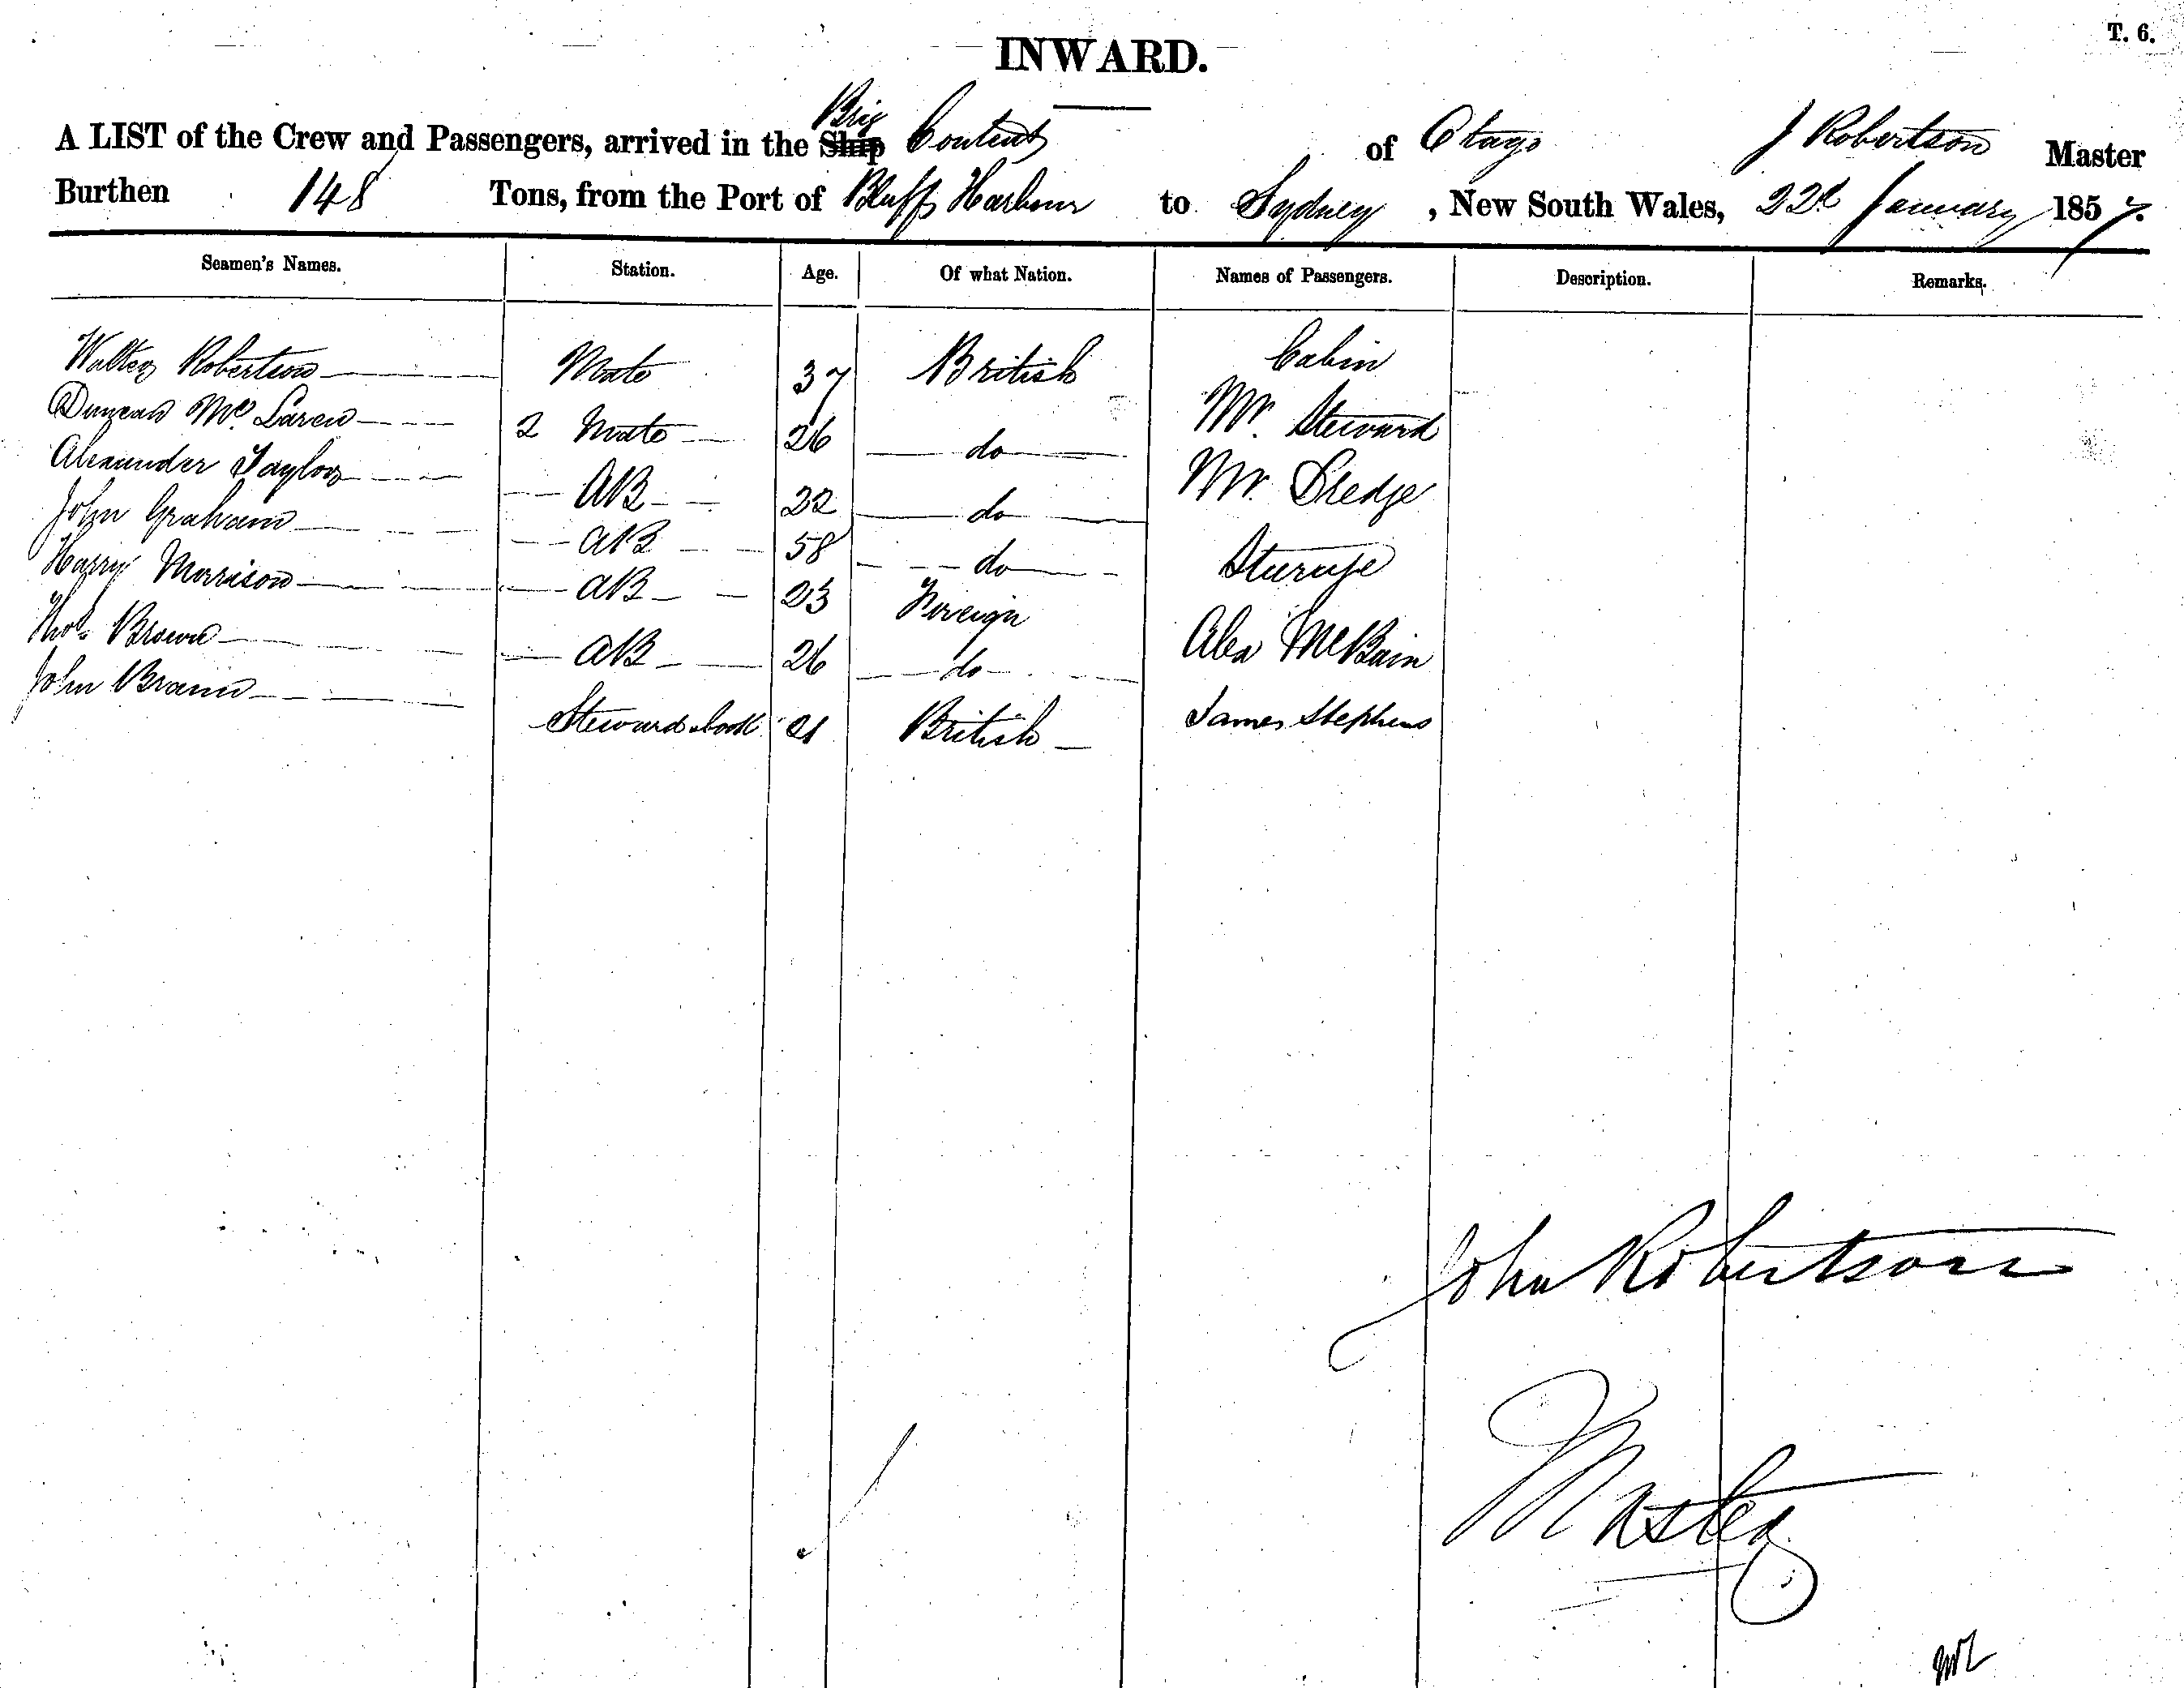 T. 6.
INWARD.
Brig
A LIST of the Crew and Passengers, arrived in the Ship Content of Otago J Robertson Master
Burthen 148 Tons, from the Port of Bluff Harbour to Sydney, New South Wales, 22d January 1857.
Seamen's Names. Station. Age. Of what Nation. Names of Passengers. Description. Remarks.
Walter Robertson Mate 37 British Cabin
Duncan McLaren 2 Mate 26 do Mr. Steward
Alexander Taylor AB 22 do Mr. Sledge
John Graham AB 58 do Sturuje
Harry Morrison AB 23 Foreign
Thos Brown AB 26 do Alex McBain
John Brown Steward & Cook 21 British James Stephens
John Robertson
Master